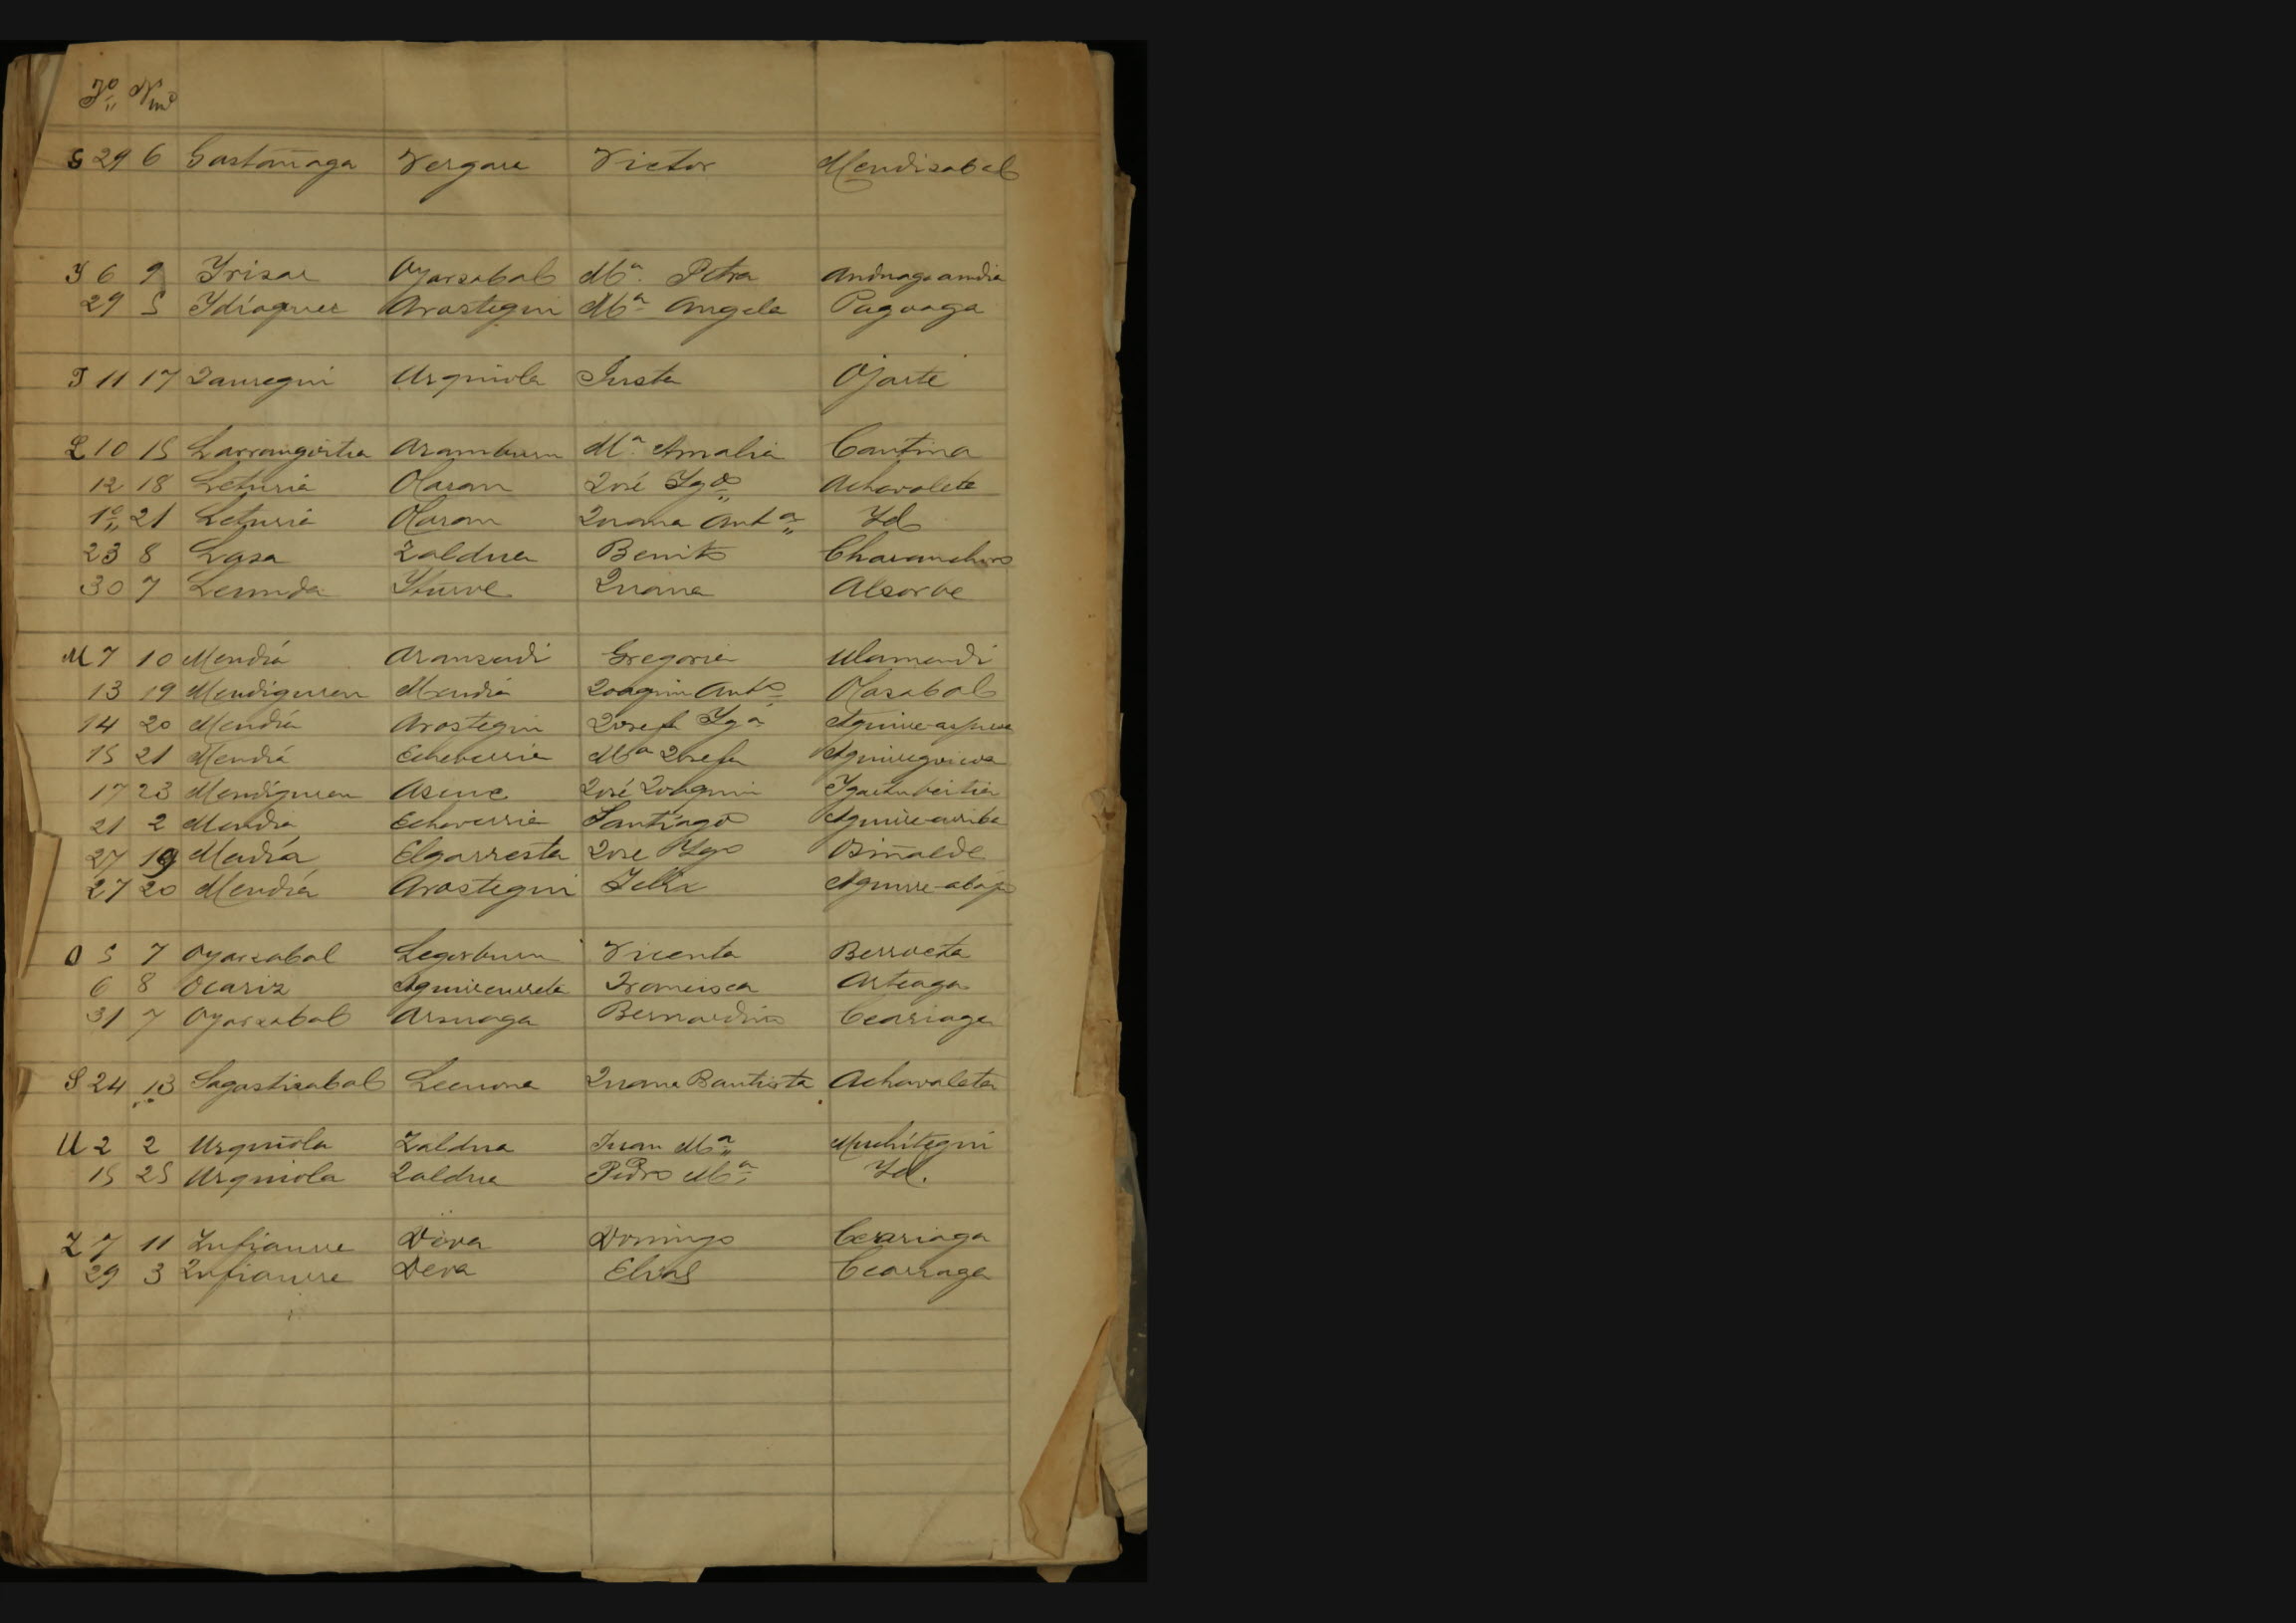 Fº Nmº
G 29 6 Gastañaga Vergara Victor Mendizabal
Y 6 9 Yrizar Oyarzabal Mª Petra Anduaga andia
29 5 Ydiaquez Arostegui Mª Angela Pagoaga
J 11 17 Jauregui Urquiola Justa Ojarte
L 10 15 Larrangoitia Aramburu Mª Amalia Cantina
12 18 Leturia Olaran José Ygº Achavalete
1º 21 Leturia Olaran Juana Antª Yd
23 8 Lasa Zaldua Benito
30 7 Lecunda Yturve Juana Alzorbe
M 7 10 Mendia Aranzadi Gregoria Ulamendi
13 19 Mendiguren Mendia Joaquin Antº Olazabal
14 20 Mendía Arostegui Josefa Ygª
15 21 Mendiá Echeverria Mª Josefa
17 23 Mendiguren Ascue José Joaquin Ygartubeitia
21 2 Mendia Echaverria Santiago Aguirre-arriba
27 19 Madía Elgarresta Jose Ygº
27 20 Mendia Arostegui Felix Aguirre-abajo
O 5 7 Oyarzabal Legorburu Vicenta Berroeta
6 8 Ocariz Aguirreurreta Francisca Arteaga
31 7 Oyarzabal Arsuaga Bernardino Ceariaga
S 24 13 Sagastizabal Lecuona Juana Bautista Achavaleta
U 2 2 Urquiola Zaldua Juan Mª Muchitegui
15 25 Urquiola Zaldua Pedro Mª Yd.
Z 7 11 Zufiaurre Deva Domingo Ceariaga
29 3 Zufiaurre Deva Elias Cearraga